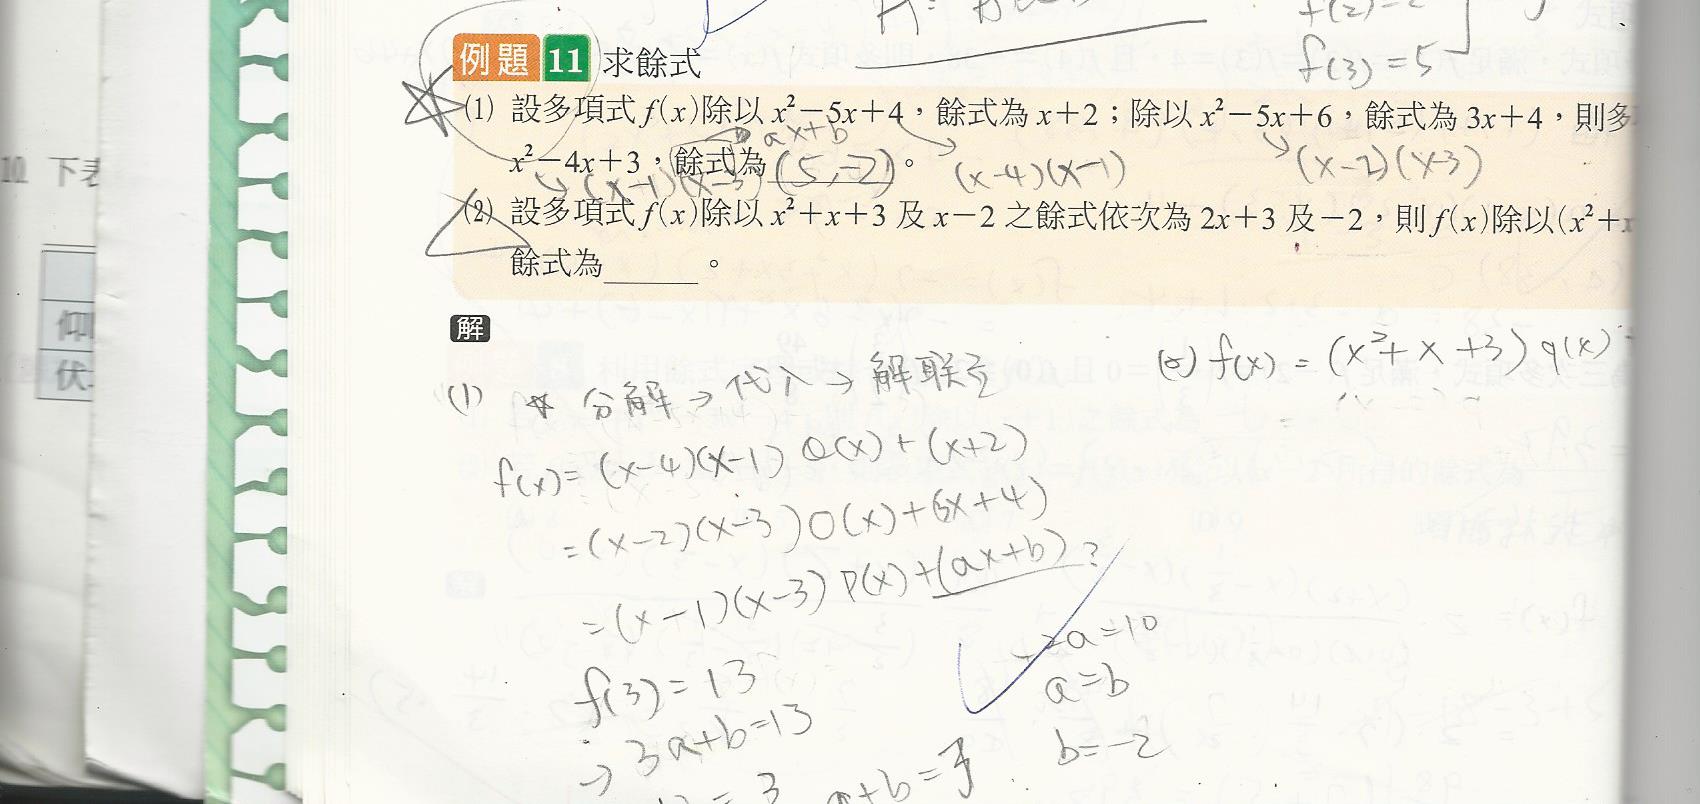 f(2)=2
f(3)=5
例題 11 求餘式
(1) 設多項式 f(x)除以 x²−5x+4,餘式為 x+2;除以 x²−5x+6,餘式為 3x+4,則多
ax+b
x²−4x+3,餘式為 (5,-2)。
(x-1)(x-3)
(x-4)(x-1)
(x-2)(x-3)
(2) 設多項式 f(x)除以 x²+x+3 及 x−2 之餘式依次為 2x+3 及−2,則 f(x)除以(x²+x
餘式為______。
10 下表
仰
伏
解
(1) ☆ 分解→代入→解聯立
f(x)=(x-4)(x-1) Q(x)+(x+2)
=(x-2)(x-3)O(x)+(3x+4)
=(x-1)(x-3) P(x)+(ax+b)?
f(3)=13
→ 3a+b=13
a+b=3
-2a=10
a=b
b=-2
(2) f(x) = (x²+x+3) q(x)